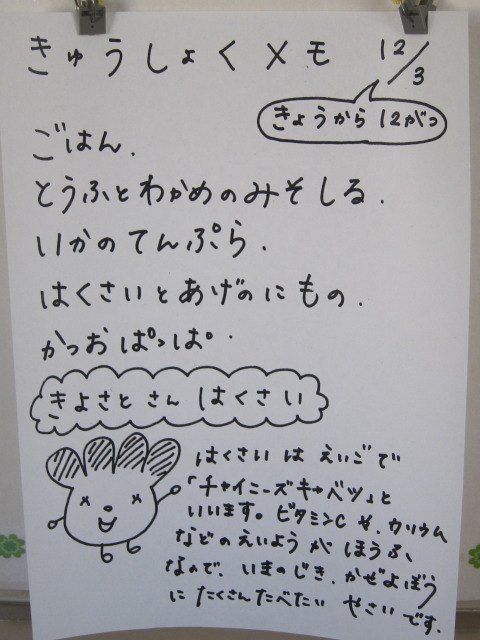 きゅうしょくメモ 12/3
きょうから12がつ
ごはん.
とうふとわかめのみそしる.
いかのてんぷら.
はくさいとあげのにもの.
かつおぱっぱ.
きよさとさんはくさい
はくさいは えいごで
「チャイニーズキャベツ」と
いいます。ビタミンCや、カリウム
などのえいようがほうふ、
なので、いまのじき、かぜよぼう
にたくさんたべたい やさいです.